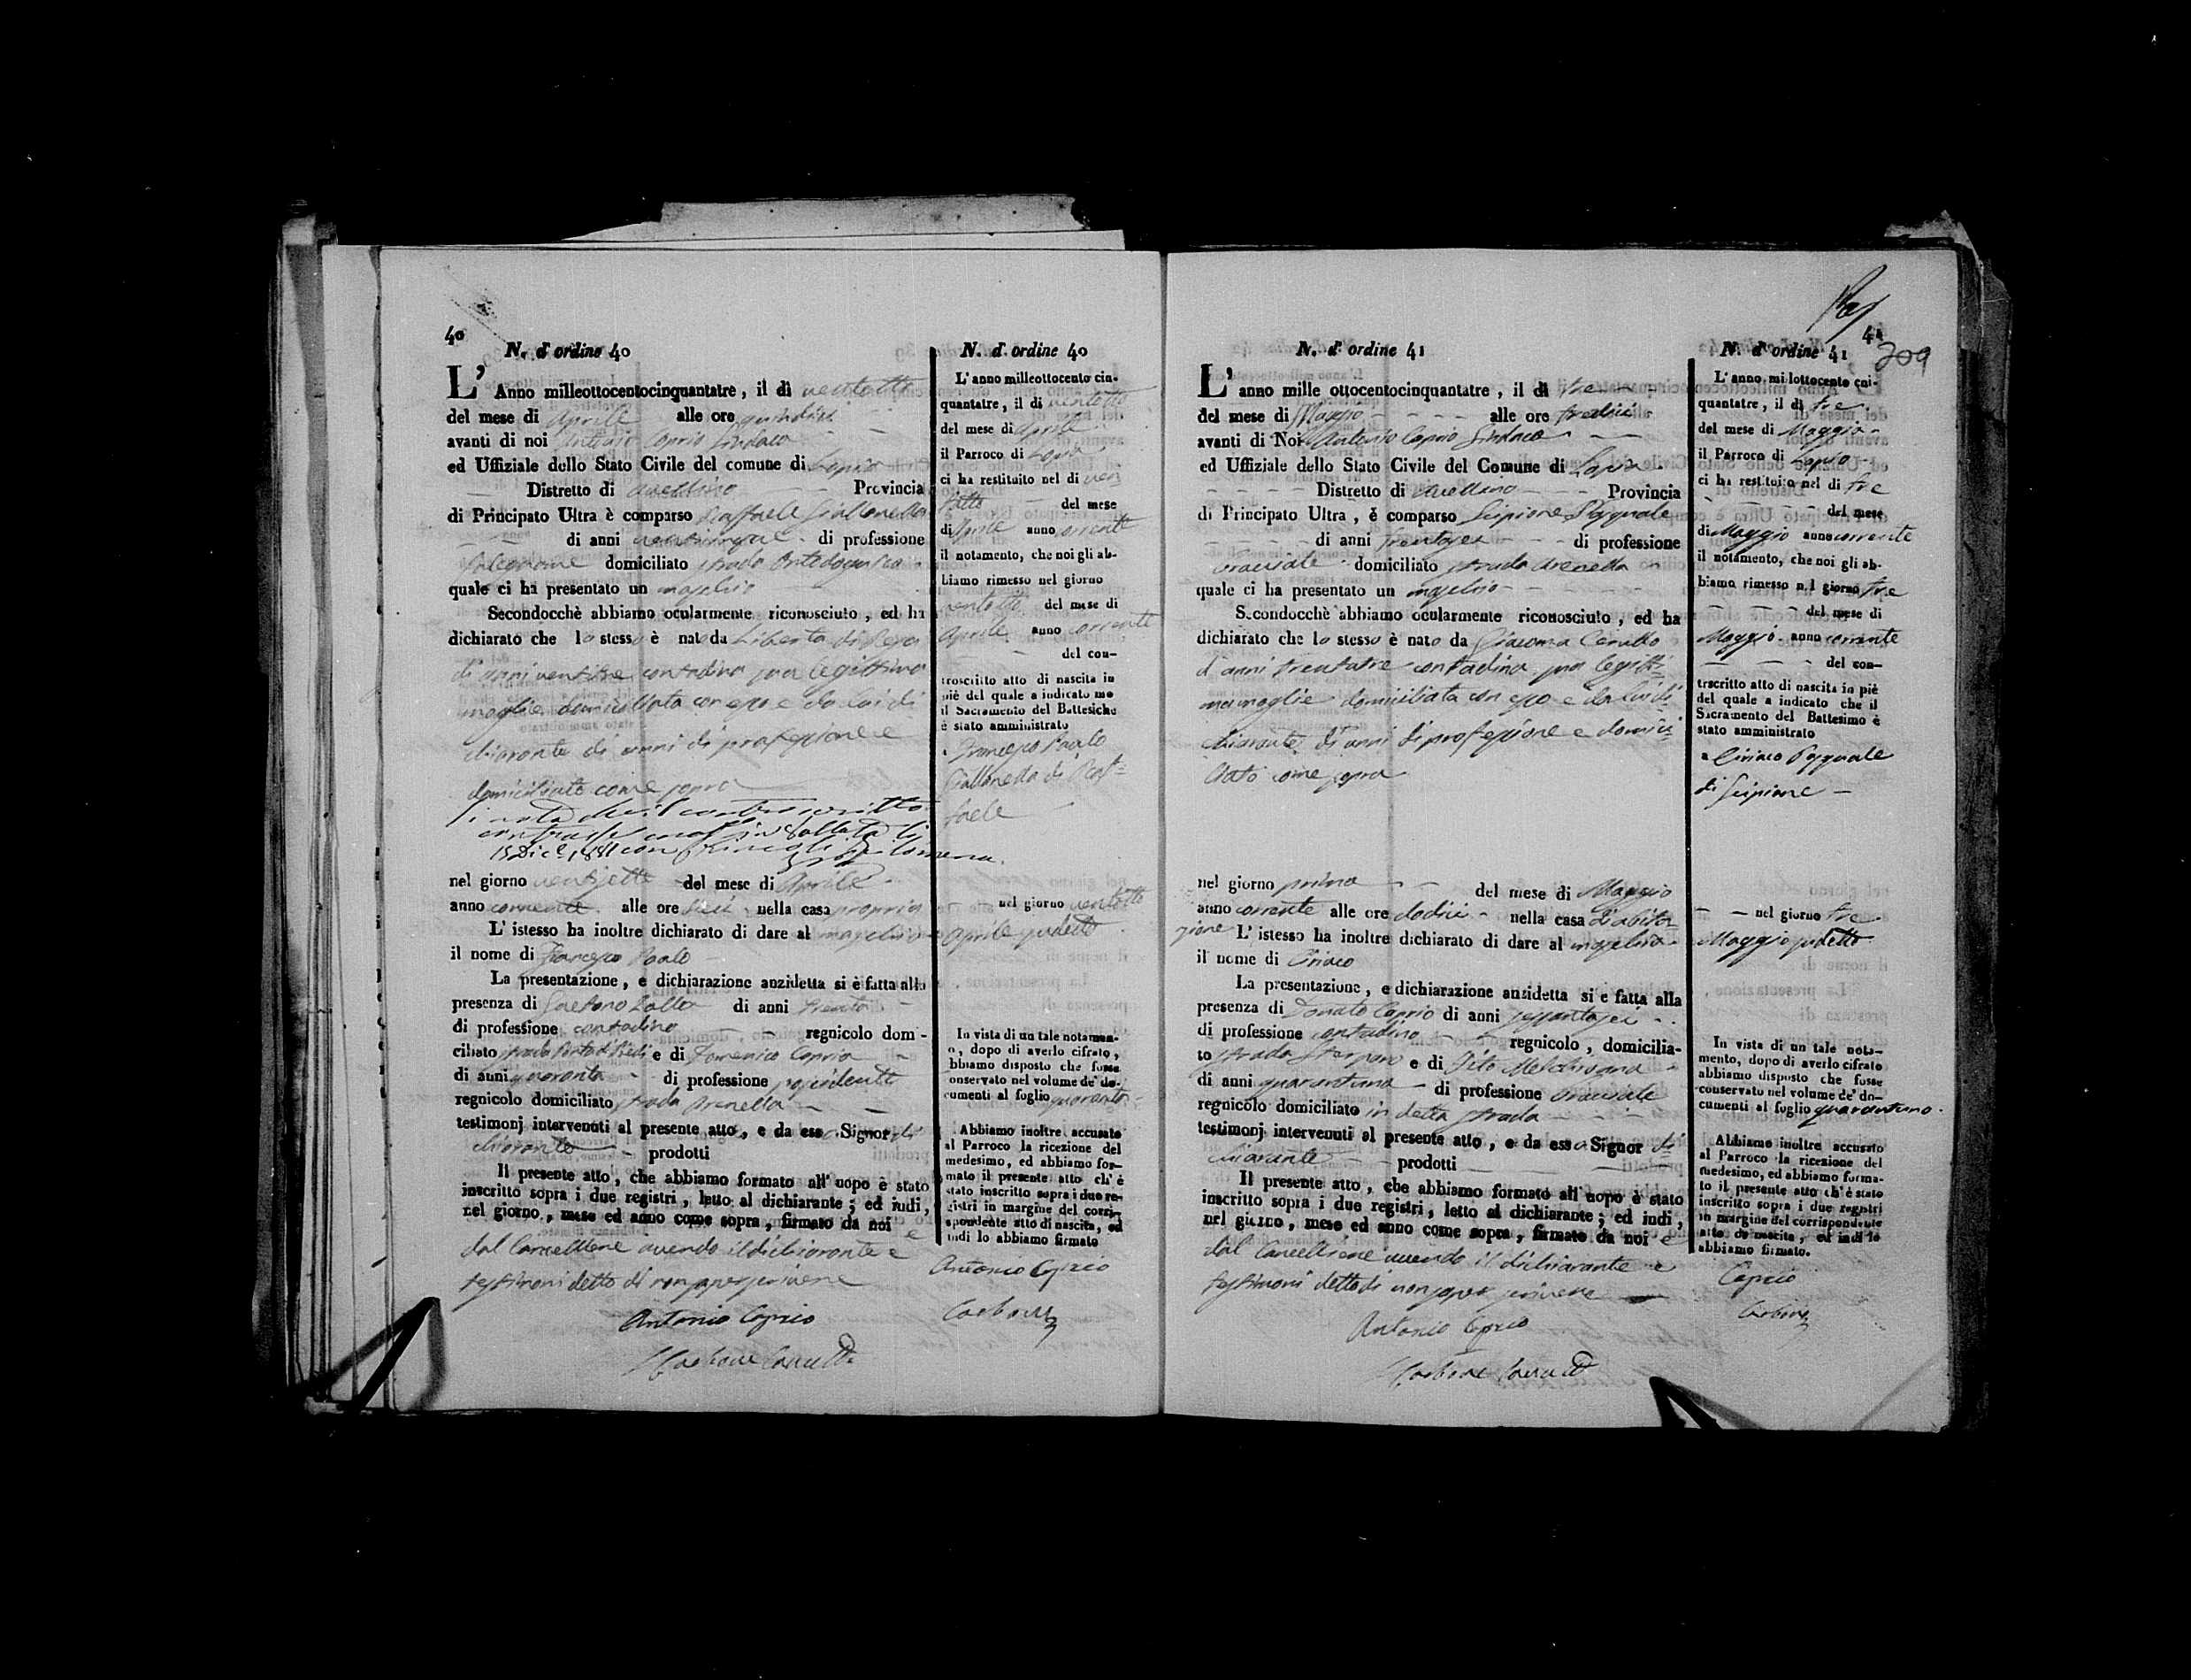 40
N. d' ordine 40
L' Anno milleottocentocinquantatre, il di ventotto
del mese di Aprile alle ore quindici
avanti di noi Antonio Caprio Sindaco
ed Uffiziale dello Stato Civile del comune di Lapio
Distretto di Avellino Provincia
di Principato Ultra è comparso Raffaele Giallonella
di anni di professione
falegname domiciliato strada
quale ci ha presentato un maschio
Secondocchè abbiamo ocularmente riconosciuto, ed ha
dichiarato che lo stesso è nato da Liberta di
di anni ventitre contadina sua legittima
moglie domiciliata con esso e da lui di
chiarante di anni di professione e
domiciliato come sopra
Si nota che il controscritto
contrasse
15 Dice 1881 con Filomena.
nel giorno ventisette del mese di Aprile
anno corrente alle ore nella casa propria
L' istesso ha inoltre dichiarato di dare al maschio
il nome di Francesco Paolo
La presentazione, e dichiarazione anzidetta si è fatta alla
presenza di Gaetano Zollo di anni trenta
di professione contadino regnicolo dom-
ciliato strada e di Domenico Caprio
di anni quaranta di professione possidente
regnicolo domiciliato strada Arenella
testimonj intervenuti al presente atto, e da esso Signor di
chiarante prodotti
Il presente atto, che abbiamo formato all' uopo è stato
inscritto sopra i due registri, letto al dichiarante; ed indi,
nel giorno, mese ed anno come sopra, firmato da noi e
dal Cancelliere avendo il dichiarante e
testimoni detto di non saper scrivere
Antonio Caprio
Carbone
N. d' ordine 40
L' anno milleottocento cin-
quantatre, il di ventotto
del mese di Aprile
il Parroco di Lapio
ci ha restituito nel di ven
totto del mese
di Aprile anno corrente
il notamento, che noi gli ab-
biamo rimesso nel giorno
ventotto del mese di
Aprile anno corrente
del con-
troscritto atto di nascita in
piè del quale a indicato
il Sacramento del
è stato amministrato
a Francesco Paolo
Giallonella di Raf=
faele
nel giorno ventotto
Aprile sudetto
In vista di un tale notamen-
o, dopo di averlo cifrato,
bbiamo disposto che fosse
onservato nel volume de' do-
cumenti al foglio quaranta
Abbiamo inoltre accusato
al Parroco la ricezione del
medesimo, ed abbiamo for-
mato il presente atto ch' è
stato inscritto sopra i due re-
gistri in margine del corri-
spondente atto di nascita, ed
indi lo abbiamo firmato
Antonio Caprio
Carbone
41
209
N. d' ordine 41
L' anno mille ottocentocinquantatre, il di tre
del mese di Maggio alle ore tredici
avanti di Noi Antonio Caprio Sindaco
ed Uffiziale dello Stato Civile del Comune di Lapio
Distretto di Avellino Provincia
di Principato Ultra, è comparso Scipione Pasquale
di anni trentasei di professione
bracciale domiciliato strada Arenella
quale ci ha presentato un maschio
Secondocchè abbiamo ocularmente riconosciuto, ed ha
dichiarato che lo stesso è nato da Giacoma Carullo
d'anni trentatre contadina sua legitti=
ma moglie domiciliata con esso e da lui di=
chiarante di anni di professione e domici=
liato come sopra
nel giorno primo del mese di Maggio
anno corrente alle ore dodici nella casa di abita
zione L' istesso ha inoltre dichiarato di dare al maschio
il nome di Ciriaco
La presentazione, e dichiarazione anzidetta si e fatta alla
presenza di Donato Caprio di anni sessantasei
di professione contadino regnicolo, domicilia-
to strada e di Vito
di anni quarantuno di professione bracciale
regnicolo domiciliato in detta strada
testimonj intervenuti al presente atto, e da esso Signor di
chiarante prodotti
Il presente atto, che abbiamo formato all' uopo è stato
inscritto sopra i due registri, letto al dichiarante; ed indi,
nel giorno, mese ed anno come sopra, firmato da noi e
dal Cancelliere avendo il dichiarante e
testimoni detto di non saper scrivere
Antonio Caprio
Carbone
N. d' ordine 41
L' anno mi lottocento cin-
quantatre, il di tre
del mese di Maggio
il Parroco di Lapio
ci ha restituito nel di tre
del mese
di Maggio anno corrente
il notamento, che noi gli ab-
biamo rimesso nel giorno tre
del mese di
Maggio anno corrente
del con-
trscritto atto di nascita in piè
del quale a indicato che il
Sacramento del Battesimo è
stato amministrato
a Ciriaco Pasquale
di Scipione
nel giorno tre
Maggio sudetto
In vista di un tale nota-
mento, dopo di averlo cifrato
abbiamo disposto che fosse
conservato nel volume de' do-
cumenti al foglio quarantuno.
Abbiamo inoltre accusato
al Parroco la ricezione del
medesimo, ed abbiamo forma-
to il presente atto ch' è stato
inscritto sopra i due registri
in margine del corrispondente
atto di nascita, ed indi lo
abbiamo firmato.
Caprio
Carbone